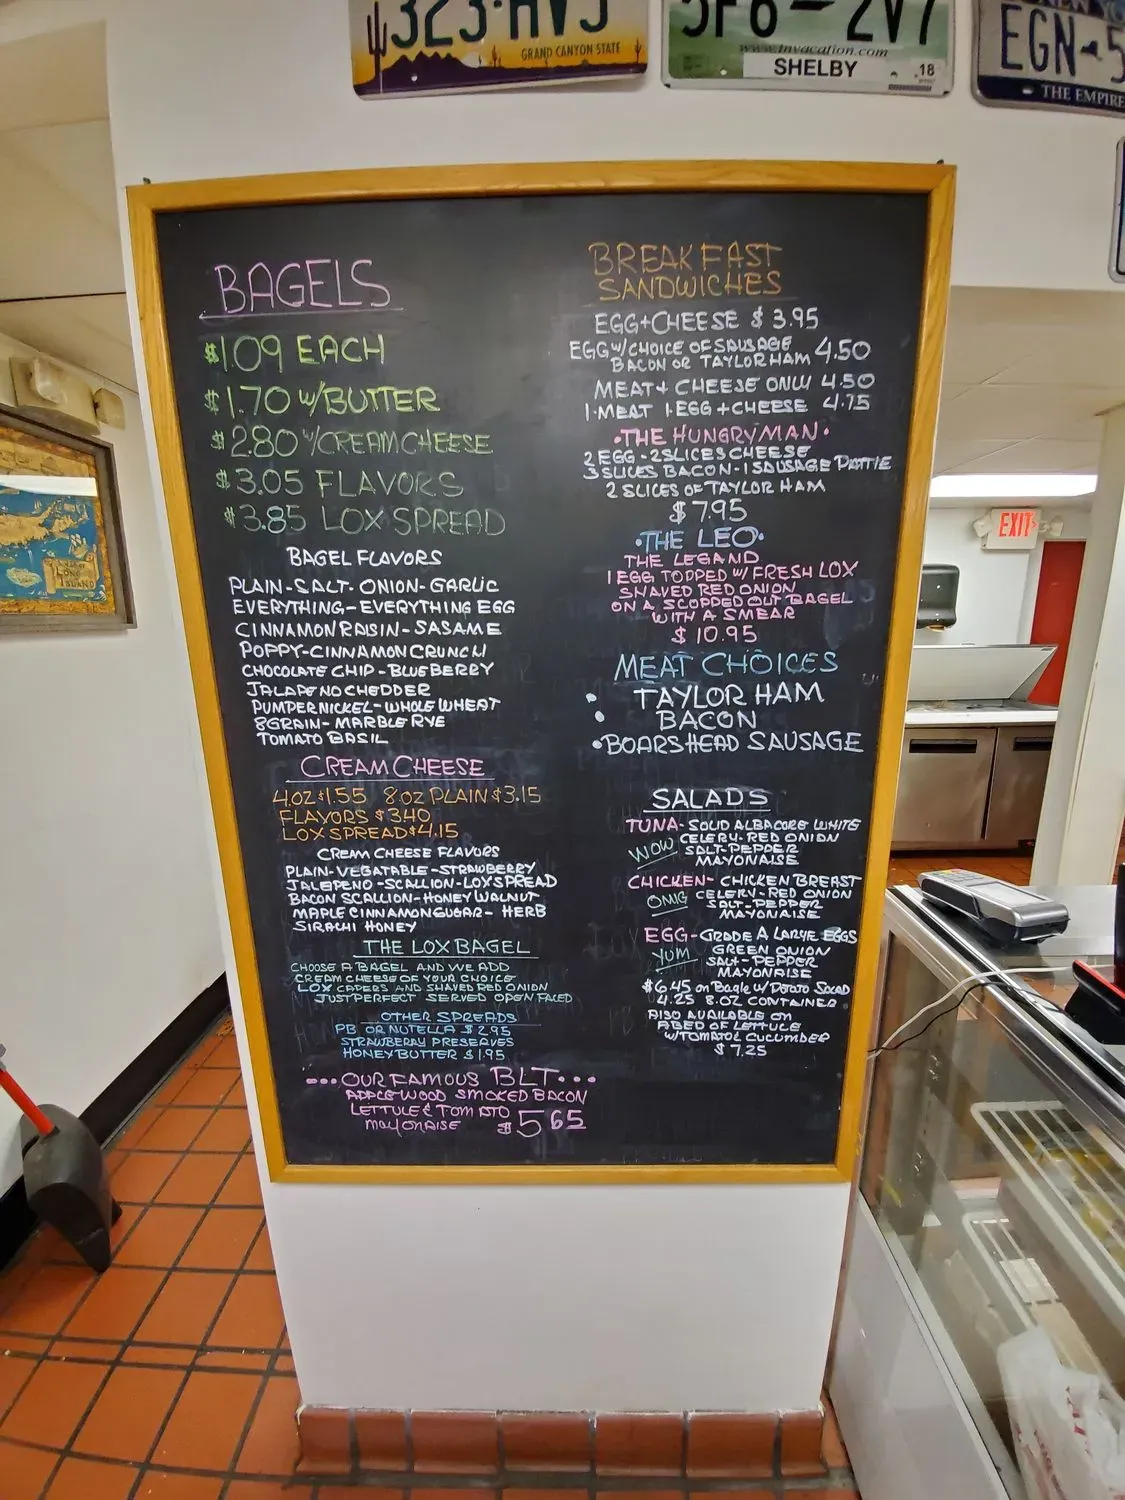 323·HVJ
GRAND CANYON STATE
5F6 2V7
www.tnvacation.com
SHELBY
18
EGN 5
THE EMPIRE
BAGELS
$1.09 EACH
$1.70 w/BUTTER
$2.80 w/CREAM CHEESE
$3.05 FLAVORS
$3.85 LOX SPREAD
BAGEL FLAVORS
PLAIN-SALT-ONION-GARLIC
EVERYTHING-EVERYTHING EGG
CINNAMON RAISIN-SASAME
POPPY-CINNAMON CRUNCH
CHOCOLATE CHIP-BLUEBERRY
JALAPENO CHEDDER
PUMPERNICKEL-WHOLE WHEAT
8GRAIN-MARBLE RYE
TOMATO BASIL
CREAM CHEESE
4OZ $1.55 8OZ PLAIN $3.15
FLAVORS $340
LOX SPREAD $4.15
CREAM CHEESE FLAVORS
PLAIN-VEGATABLE-STRAWBERRY
JALEPENO-SCALLION-LOX SPREAD
BACON SCALLION-HONEY WALNUT
MAPLE CINNAMON SUGAR- HERB
SIRACHI HONEY
THE LOX BAGEL
CHOOSE A BAGEL AND WE ADD
CREAM CHEESE OF YOUR CHOICE
LOX CAPERS AND SHAVED RED ONION
JUST PERFECT SERVED OPEN FACED
OTHER SPREADS
PB OR NUTELLA $2.95
STRAWBERRY PRESERVES
HONEY BUTTER $1.95
OUR FAMOUS BLT...
APPLEWOOD SMOKED BACON
LETTUCE & TOMATO
MAYONAISE $5 65
BREAKFAST
SANDWICHES
EGG+CHEESE $3.95
EGG W/CHOICE OF SAUSAGE
BACON OR TAYLOR HAM 4.50
MEAT+ CHEESE ONLY 4.50
1-MEAT 1-EGG+CHEESE 4.75
·THE HUNGRYMAN·
2 EGG-2 SLICES CHEESE
3 SLICES BACON-1 SAUSAGE PATTIE
2 SLICES OF TAYLOR HAM
$7.95
·THE LEO·
THE LEGAND
1 EGG TOPPED W/ FRESH LOX
SHAVED RED ONION
ON A SCOPPED OUT BAGEL
WITH A SMEAR
$10.95
MEAT CHOICES
• TAYLOR HAM
• BACON
•BOARSHEAD SAUSAGE
SALADS
TUNA- SOLID ALBACORE WHITE
WOW CELERY-RED ONION
SALT-PEPPER
MAYONAISE
CHICKEN- CHICKEN BREAST
OMG CELERY-RED ONION
SALT-PEPPER
MAYONAISE
EGG-GRADE A LARGE EGGS
YUM GREEN ONION
SALT-PEPPER
MAYONAISE
$6.45 on Bagle w/ Potato Salad
4.25 8.OZ CONTAINER
ALSO AVAILABLE ON
A BED OF LETTUCE
W/TOMATOE CUCUMBER
$7.25
EXIT
LONG ISLAND